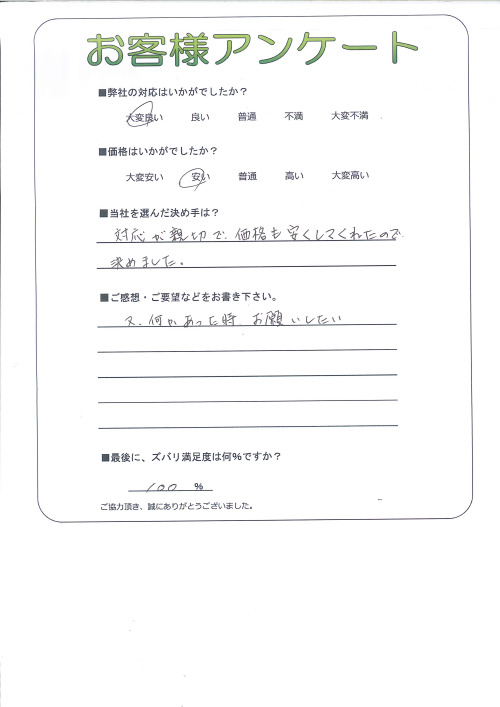 お客様アンケート
■弊社の対応はいかがでしたか？
大変良い 良い 普通 不満 大変不満
■価格はいかがでしたか？
大変安い 安い 普通 高い 大変高い
■当社を選んだ決め手は？
対応が親切で、価格も安くしてくれたので
決めました。
■ご感想・ご要望などをお書き下さい。
又、何かあった時、お願いしたい
■最後に、ズバリ満足度は何%ですか？
100 %
ご協力頂き、誠にありがとうございました。